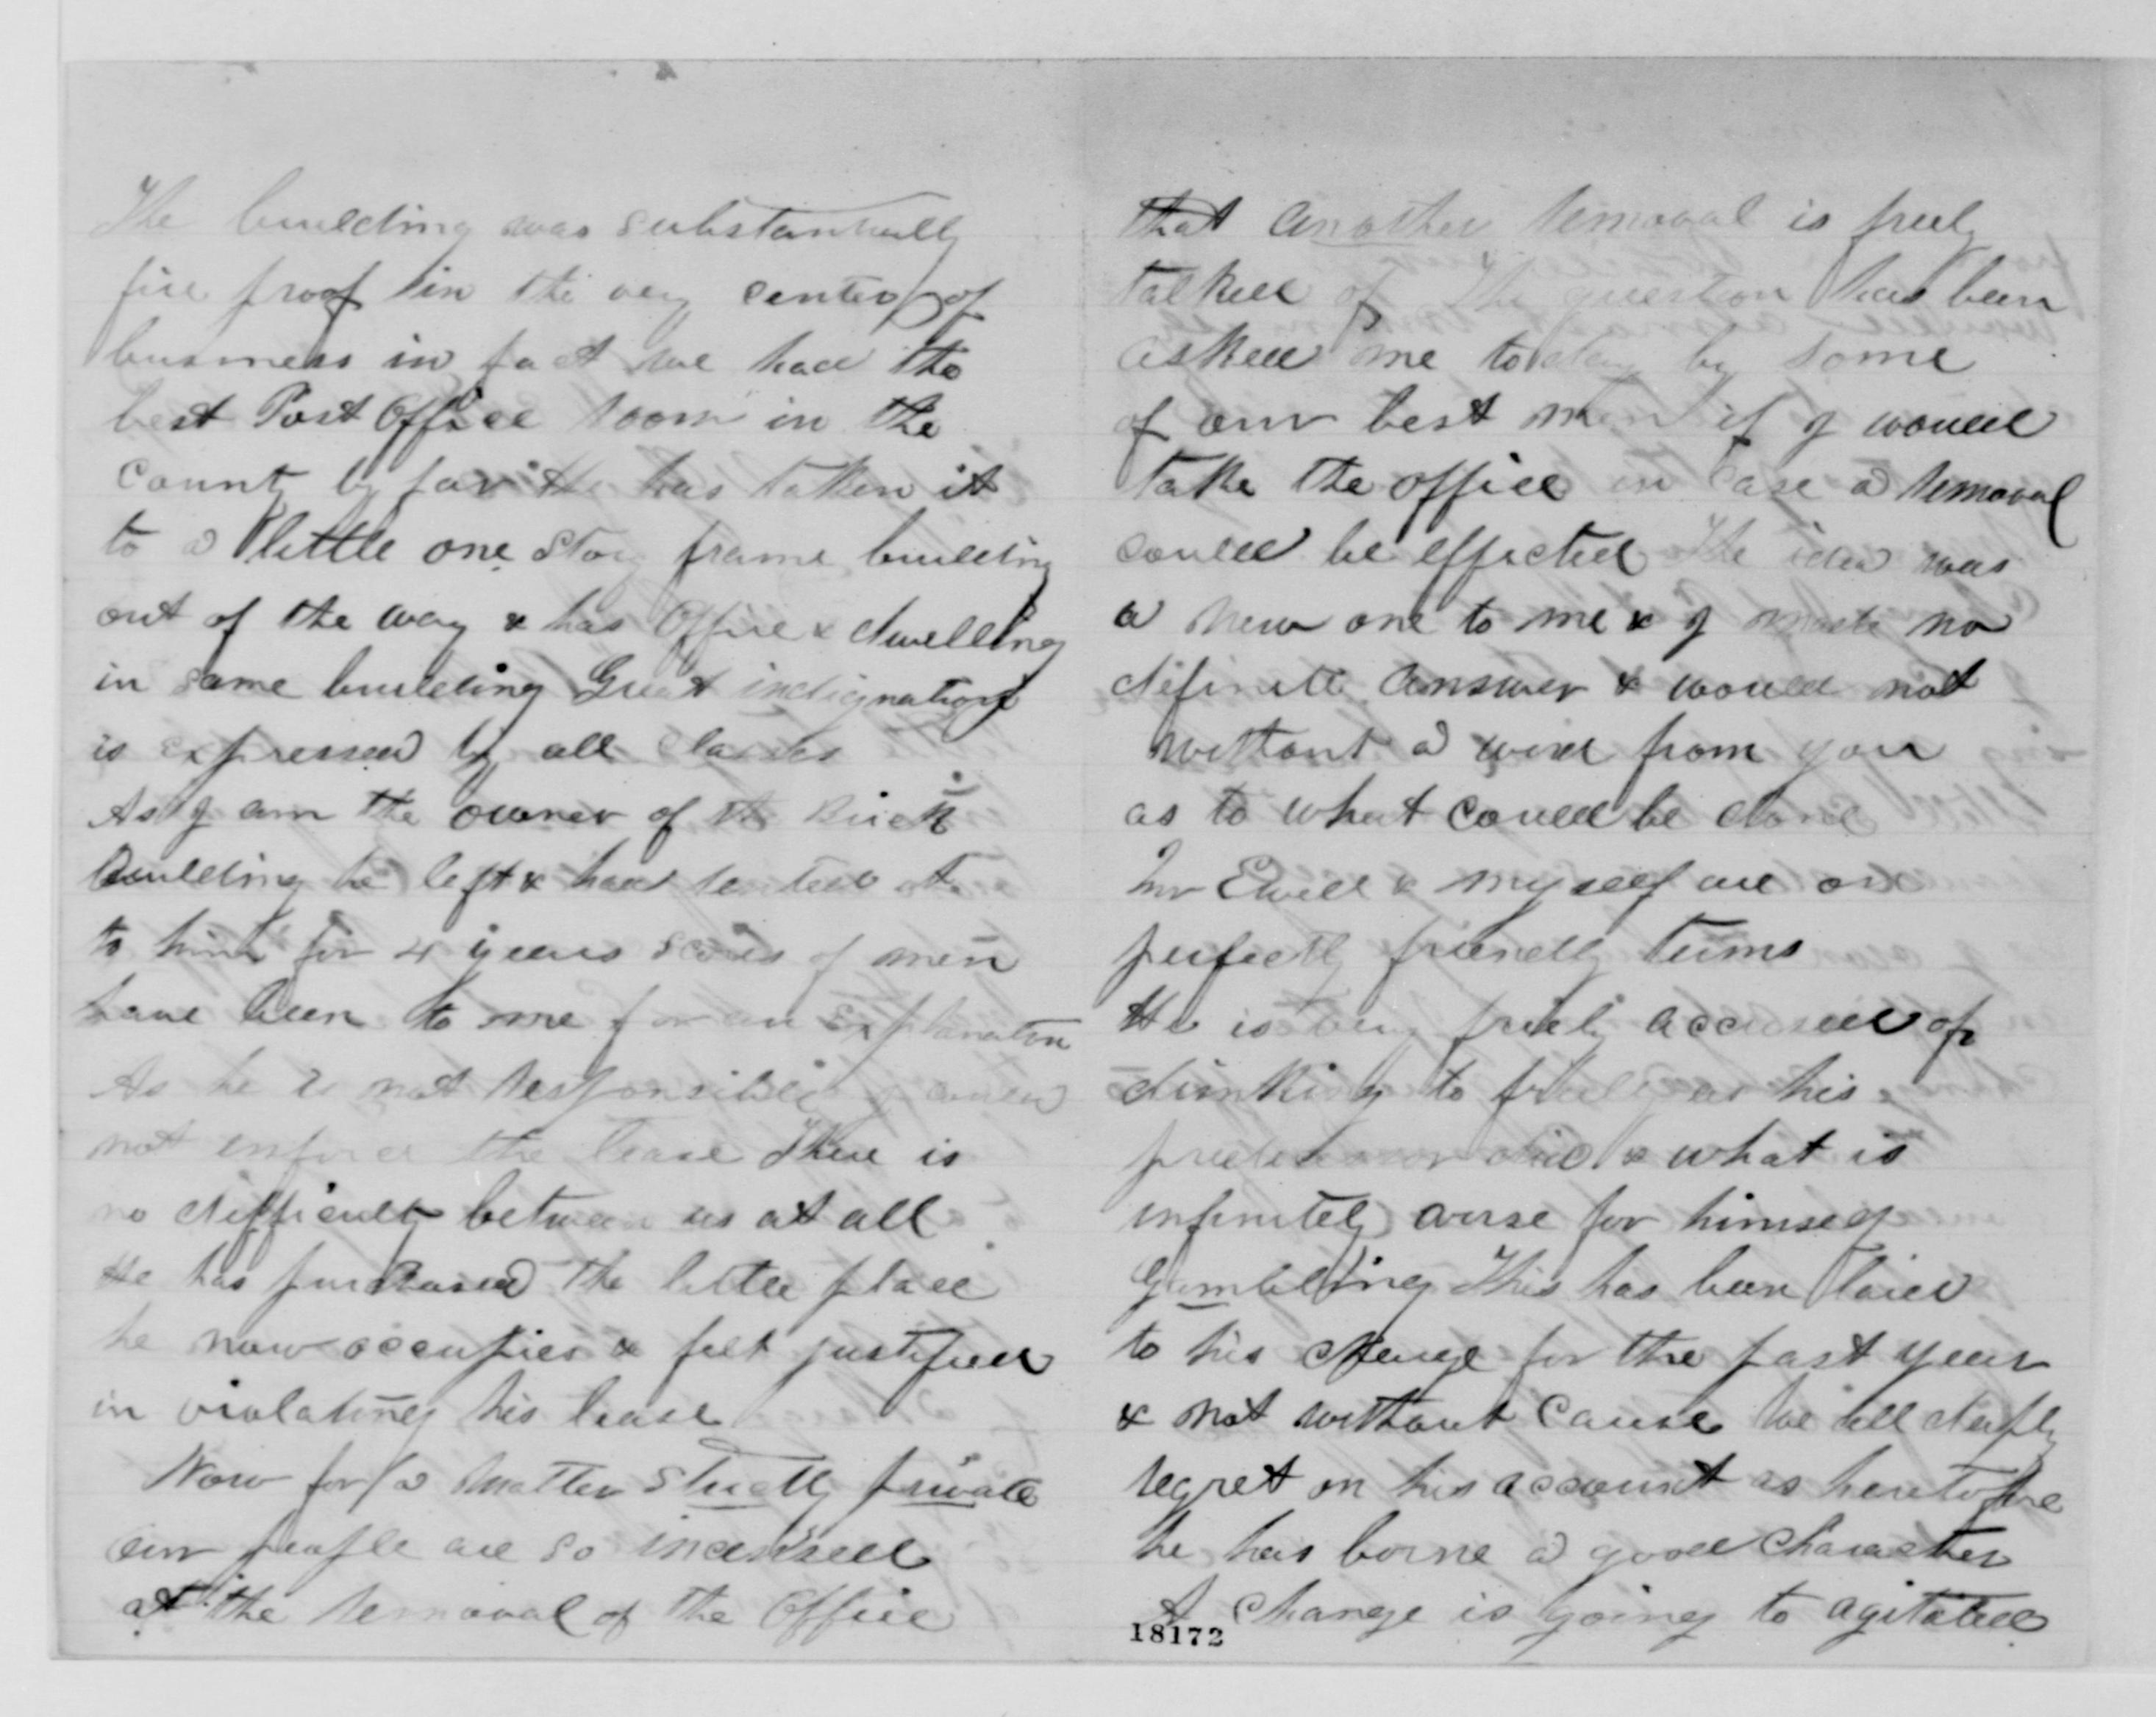 The building was substantually
fire proof in the very center of
business in fact we had the
best Post Office room in the
County by far He has taken it
to a little one story frame building
out of the way & has Office & dwelling
in same building Great indignation
is expressed by all classes
As I am the owner of the Brick
Building he left & had rented it
to him for 4 years scores of men
have been to me for an explanation
As he is not responsible I could
not enforce the lease There is
no difficulty between us at all
He has purchased the little place
he now occupies & felt justified
in violating his lease
Now for a matter strictly private
Our people are so incensed
at the removal of the Office
that another removal is freely
talked of The question has been
asked me today by some
of our best men if I would
take the office in case a removal
could be effected The idea was
a new one to me & I made no
definite answer & would not
without a word from you
as to what could be done
Mr Elwell & myself are on
perfectly friendly terms
He is very freely accused of
drinking to freely as his
predecessor did & what is
infinitely worse for himself
Gambling This has been laid
to his charge for the past year
& not without cause We all deeply
regret on his account as heretofore
he has borne a good character
A change is going to agitated
18172